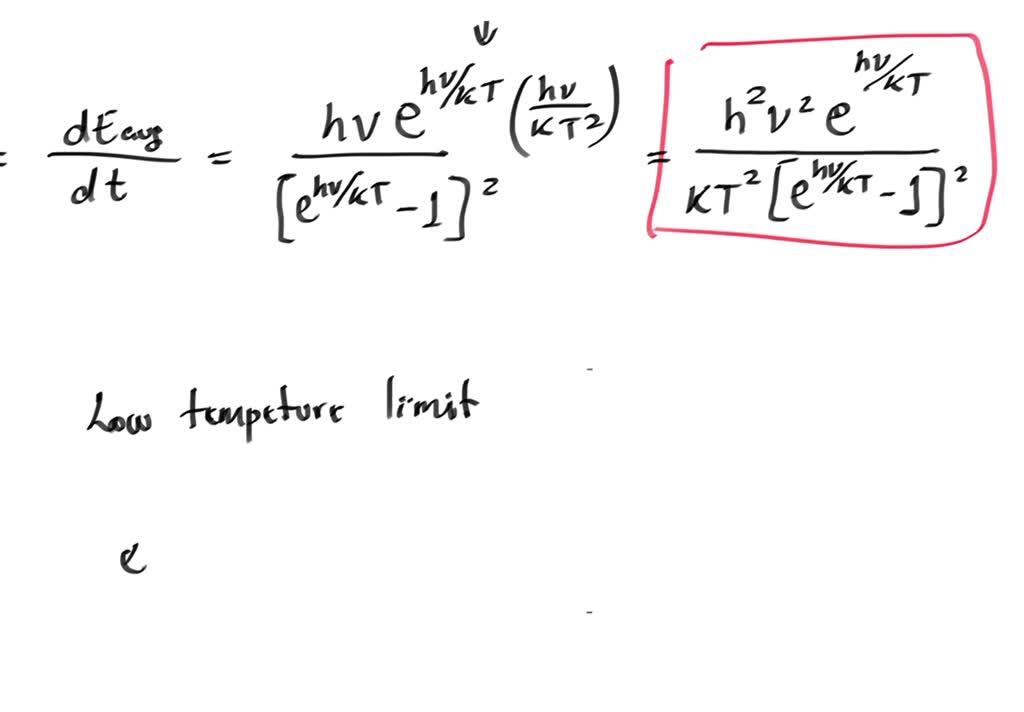 = dEavg/dt = hν e^{hν/KT} (hν/KT²) / [e^{hν/KT} - 1]² = h²ν² e^{hν/KT} / KT² [e^{hν/KT} - 1]²
Low tempeture limit
e